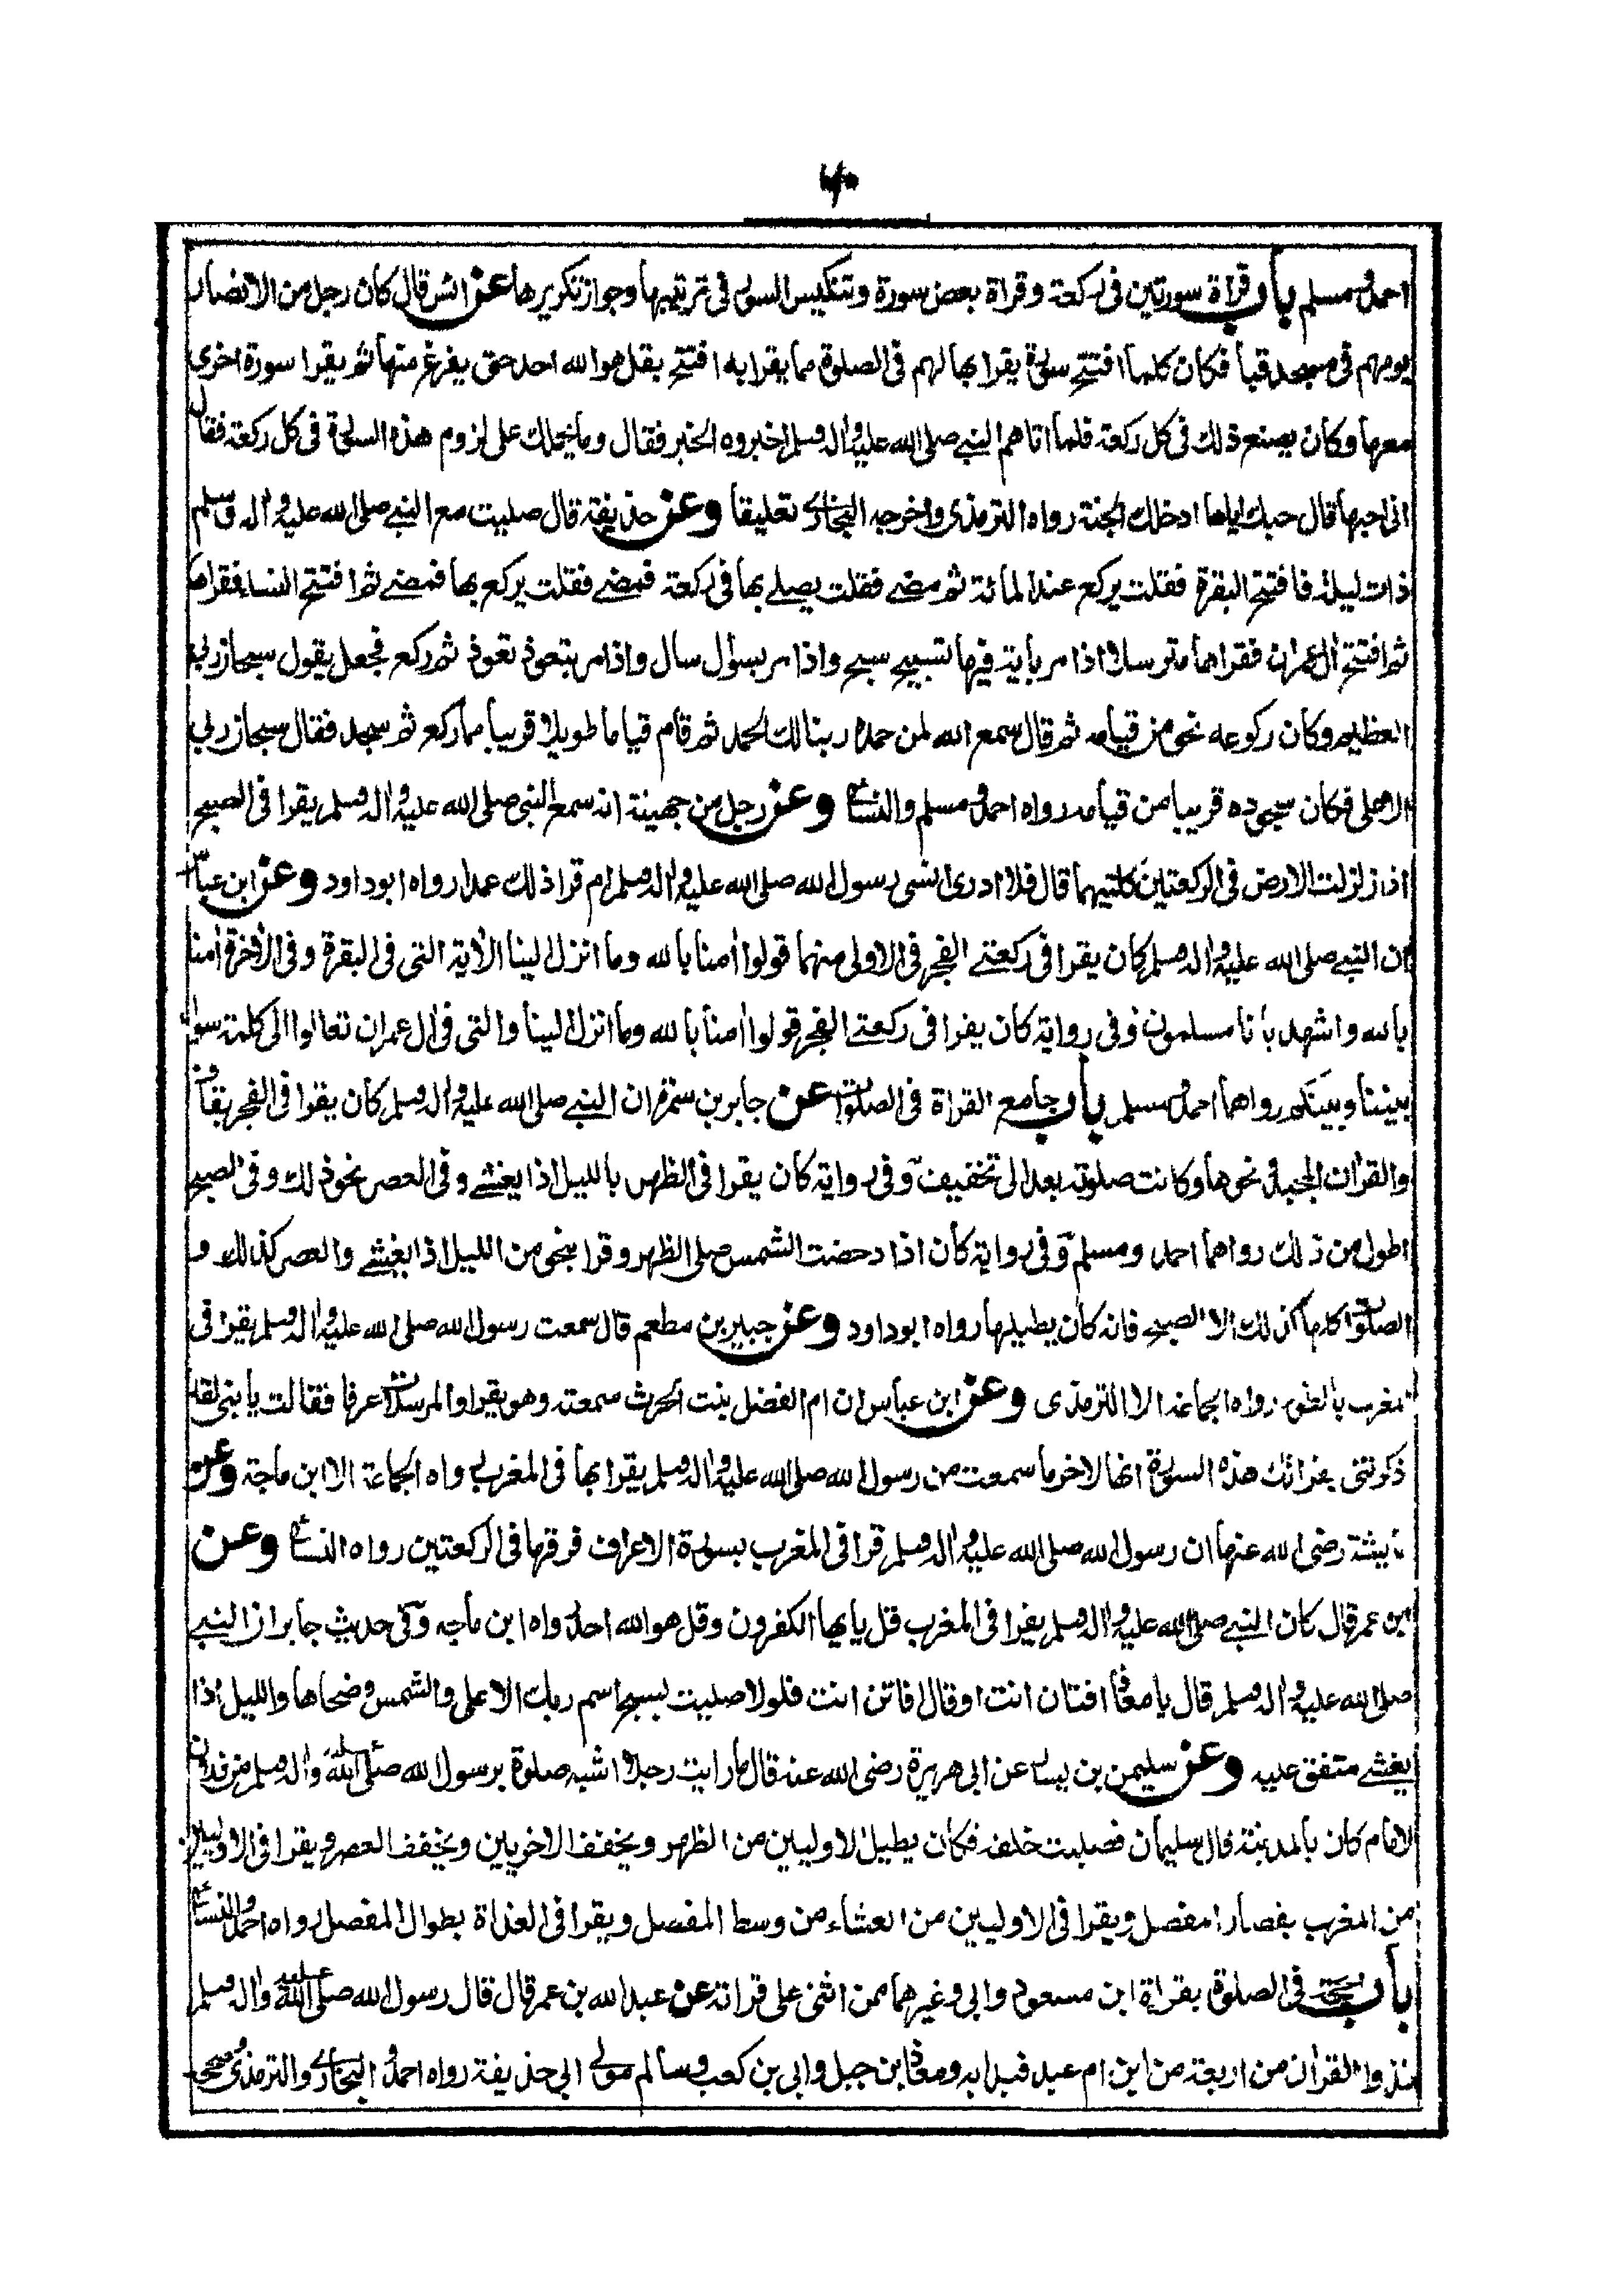 احمد ومسلم باب قراة سورتين فى ركعة وقراة بعض سورة وتنكيس السور فى ترتيبها وجواز تكريرها عن انس قال كان رجل من الانصار
يومهم فى مسجد قبا فكان كلما افتتح سورة يقرا بها لهم فى الصلوة مما يقرا به افتتح بقل هو الله احد حتى يفرغ منها ثم يقرا سورة اخرى
معها وكان يصنع ذلك فى كل ركعة فلما اتاهم النبى صلى الله عليه واله وسلم اخبروه الخبر فقال وما يحملك على لزوم هذه السورة فى كل ركعة فقال
انى احبها قال حبك اياها ادخلك الجنة رواه الترمذى واخرجه البخارى تعليقا وعن حذيفة قال صليت مع النبى صلى الله عليه واله وسلم
ذات ليلة فافتتح البقرة فقلت يركع عند المائة ثم مضى فقلت يصلى بها فى ركعة فمضى فقلت يركع بها فمضى ثم افتتح النسا فقراها
ثم افتتح ال عمران فقراها مترسلا اذا مر باية فيها تسبيح سبح واذا مر بسوال سال واذا مر بتعوذ تعوذ ثم ركع فجعل يقول سبحان ربى
العظيم وكان ركوعه نحو من قيامه ثم قال سمع الله لمن حمده ربنا لك الحمد ثم قام قياما طويلا قريبا مما ركع ثم سجد فقال سبحان ربى
الاعلى فكان سجوده قريبا من قيامه رواه احمد ومسلم والنسائى وعن رجل من جهينة انه سمع النبى صلى الله عليه واله وسلم يقرا فى الصبح
اذا زلزلت الارض فى الركعتين كلتيهما قال فلا ادرى انسى رسول الله صلى الله عليه واله وسلم ام قرا ذلك عمدا رواه ابو داود وعن ابن عباس
ان النبى صلى الله عليه واله وسلم كان يقرا فى ركعتى الفجر فى الاولى منهما قولوا امنا بالله وما انزل الينا الاية التى فى البقرة وفى الاخرة امنا
بالله واشهد بانا مسلمون وفى رواية كان يقرا فى ركعتى الفجر قولوا امنا بالله وما انزل الينا والتى فى ال عمران تعالوا الى كلمة سواء
بيننا وبينكم رواهما احمد ومسلم باب جامع القراة فى الصلوات عن جابر بن سمرة ان النبى صلى الله عليه واله وسلم كان يقرا فى الفجر بقاف
والقران المجيد ونحوها وكانت صلوته بعد الى تخفيف وفى رواية كان يقرا فى الظهر بالليل اذا يغشى وفى العصر نحو ذلك وفى الصبح
اطول من ذلك رواهما احمد ومسلم وفى رواية كان اذا دحضت الشمس صلى الظهر وقرا بنحو من الليل اذا يغشى والعصر كذلك و
الصلوات كلها كذلك الا الصبح فانه كان يطيلها رواه ابو داود وعن جبير بن مطعم قال سمعت رسول الله صلى الله عليه واله وسلم يقرا فى
المغرب بالطور رواه الجماعة الا الترمذى وعن ابن عباس ان ام الفضل بنت الحرث سمعته وهو يقرا والمرسلات عرفا فقالت يا بنى لقد
ذكرتنى بقرائتك هذه السورة انها لاخر ما سمعت من رسول الله صلى الله عليه واله وسلم يقرا بها فى المغرب رواه الجماعة الا ابن ماجة وعن
عايشة رضى الله عنها ان رسول الله صلى الله عليه واله وسلم قرا فى المغرب بسورة الاعراف فرقها فى الركعتين رواه النسائى وعن
ابن عمر قال كان النبى صلى الله عليه واله وسلم يقرا فى المغرب قل يايها الكفرون وقل هو الله احد رواه ابن ماجه وفى حديث جابر ان النبى
صلى الله عليه واله وسلم قال يا معاذ افتان انت او قال افاتن انت فلولا صليت بسبح اسم ربك الاعلى والشمس وضحاها والليل اذا
يغشى متفق عليه وعن سليمن بن يسار عن ابى هريرة رضى الله عنه قال ما رايت رجلا اشبه صلوة برسول الله صلى الله عليه واله وسلم من فلان
لامام كان بالمدينة قال سليمان فصليت خلفه فكان يطيل الاوليين من الظهر ويخفف الاخريين ويخفف العصر ويقرا فى الاوليين
من المغرب بقصار المفصل ويقرا فى الاوليين من العشاء من وسط المفصل ويقرا فى الغداة بطوال المفصل رواه احمد والنسائى
باب الحجة فى الصلوة بقراة ابن مسعود وابى وغيرهما ممن اثنى على قراته عن عبد الله بن عمر قال قال رسول الله صلى الله عليه واله وسلم
خذوا القران من اربعة من ابن ام عبد فبدا به ومعاذ ابن جبل وابى بن كعب وسالم مولى ابى حذيفة رواه احمد والبخارى والترمذى وصححه